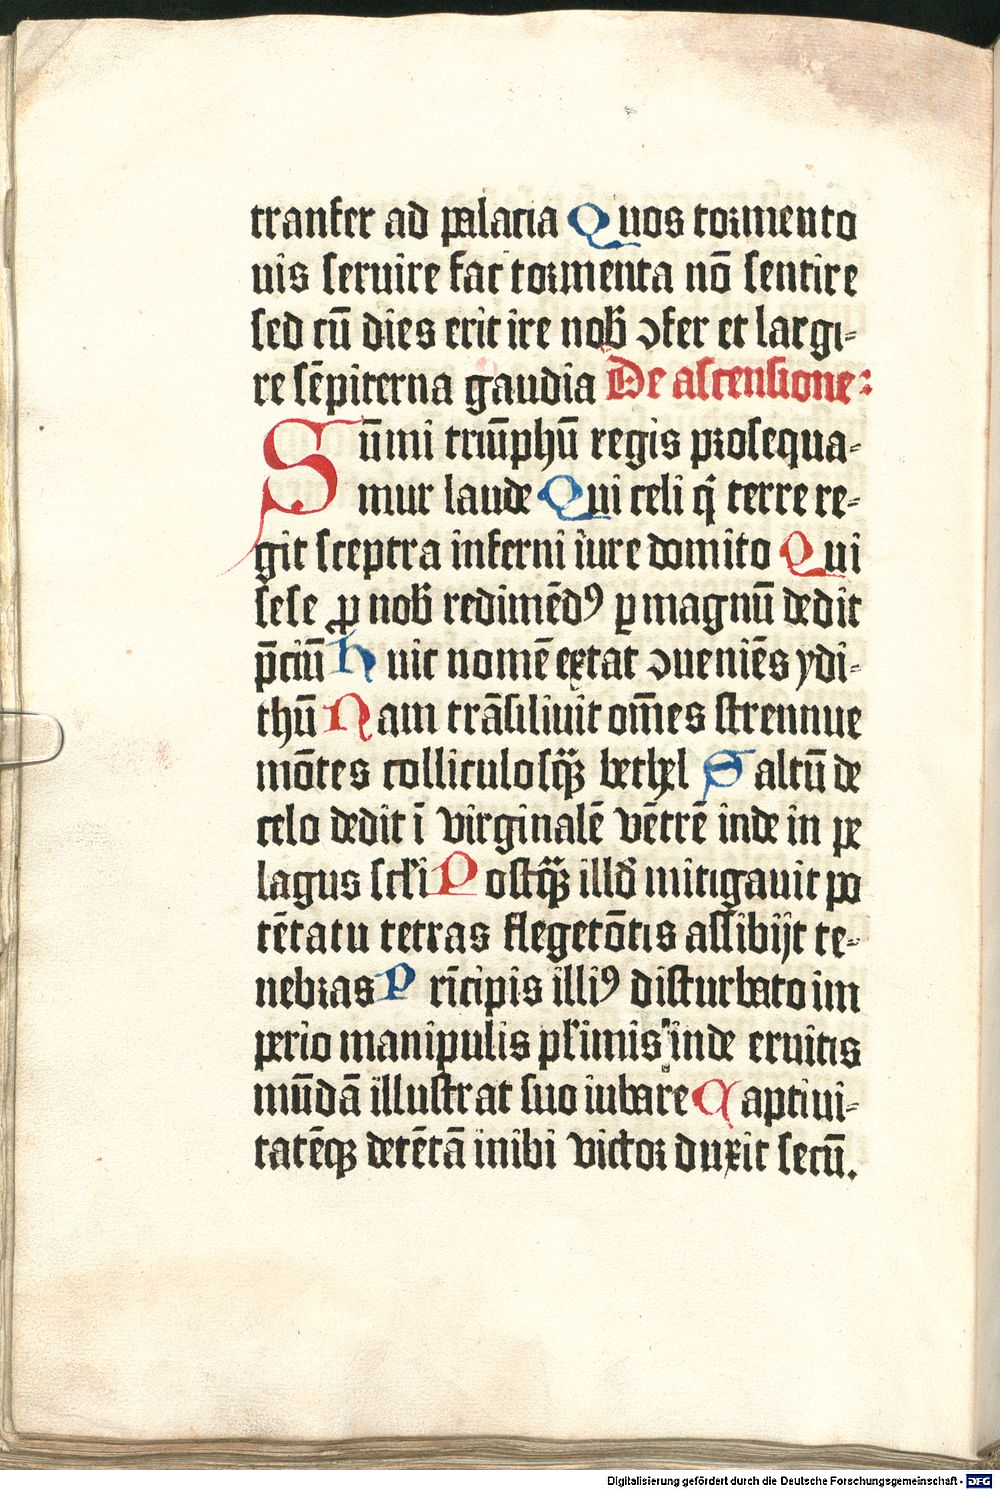 tranſfer ad palacia Quos tormento
uis ſeruire fac tormenta nō ſentire
ſed cū dies erit ire nob̄ ↄfer et largi⸗
re ſēpiterna gaudia De aſcenſione:
Sūmi triūphū regis proſequa⸗
mur laude Qui celi q̄ terre re⸗
git ſceptra inferni iure domito Qui
ſeſe ꝓ nob̄ redimēdꝰ ꝑmagnū dedit
p̄ciū Huic nomē extat ↄueniēs ydi⸗
thū Nam trāſiliuit om̄es ſtrennue
mōtes colliculoſqꝫ bethel Saltū de
celo dedit ī virginalē vētrē inde in pe
lagus ſcl̄i Poſtqꝫ illd̄ mitigauit po
tētatu tetras flegetōtis aſſibijt te⸗
nebras Prīcipis illiꝰ diſturbato im
perio manipulis pl̄imis inde erutis
mūdā illuſtrat ſuo iubare Captiui⸗
tatēqꝫ detētā inibi victor duxit ſecū.
Digitalisierung gefördert durch die Deutsche Forschungsgemeinschaft - DFG